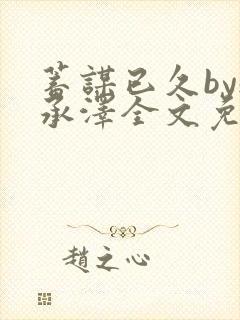 蓄謀已久by
承澤全文免
趙之心